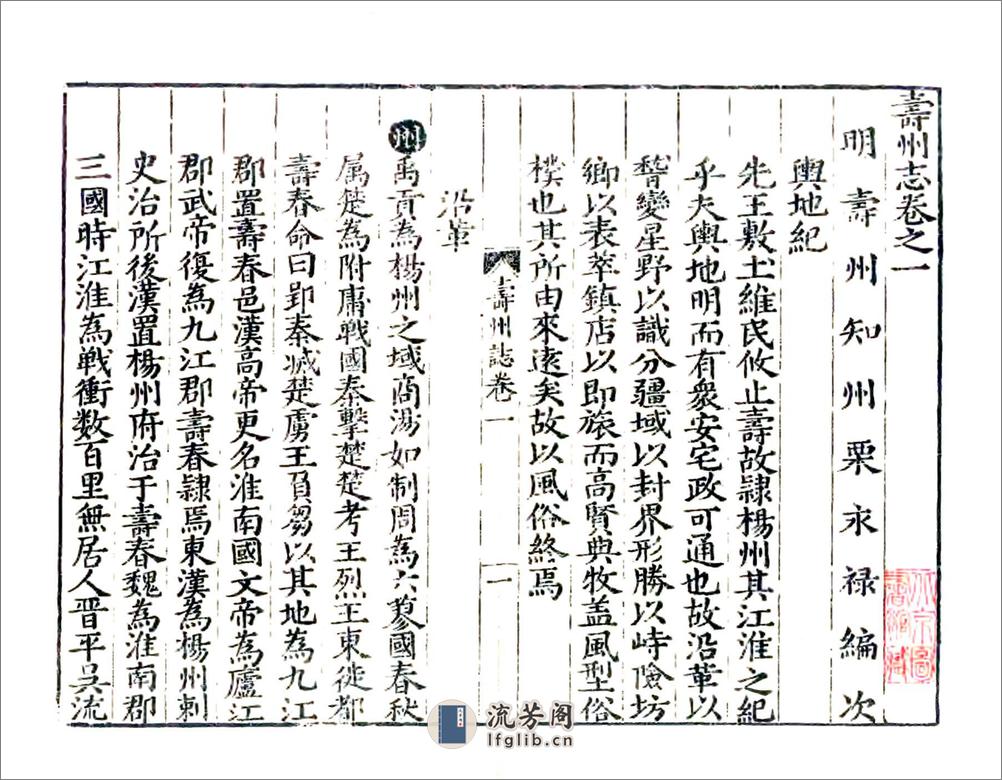 壽州志卷之一
明壽州知州栗永禄編次
輿地紀
先王敷土維民攸止壽故隷楊州其江淮之紀
乎夫輿地明而有衆安宅政可通也故沿革以
稽變星野以識分疆域以封界形勝以峙險坊
鄉以表萃鎮店以即旅而高賢典牧盖風型俗
樸也其所由來遠矣故以風俗終焉
壽州誌卷一
一
沿革
州禹貢為楊州之域商湯如制周為六蓼國春秋
属楚為附庸戰國秦擊楚楚考王烈王東徙都
壽春命曰郢秦滅楚虜王負芻以其地為九江
郡置壽春邑漢高帝更名淮南國文帝為廬江
郡武帝復為九江郡壽春隷焉東漢為楊州刺
史治所後漢置楊州府治于壽春魏為淮南郡
三國時江淮為戰衝数百里無居人晋平吳流
流芳阁
lfglib.cn